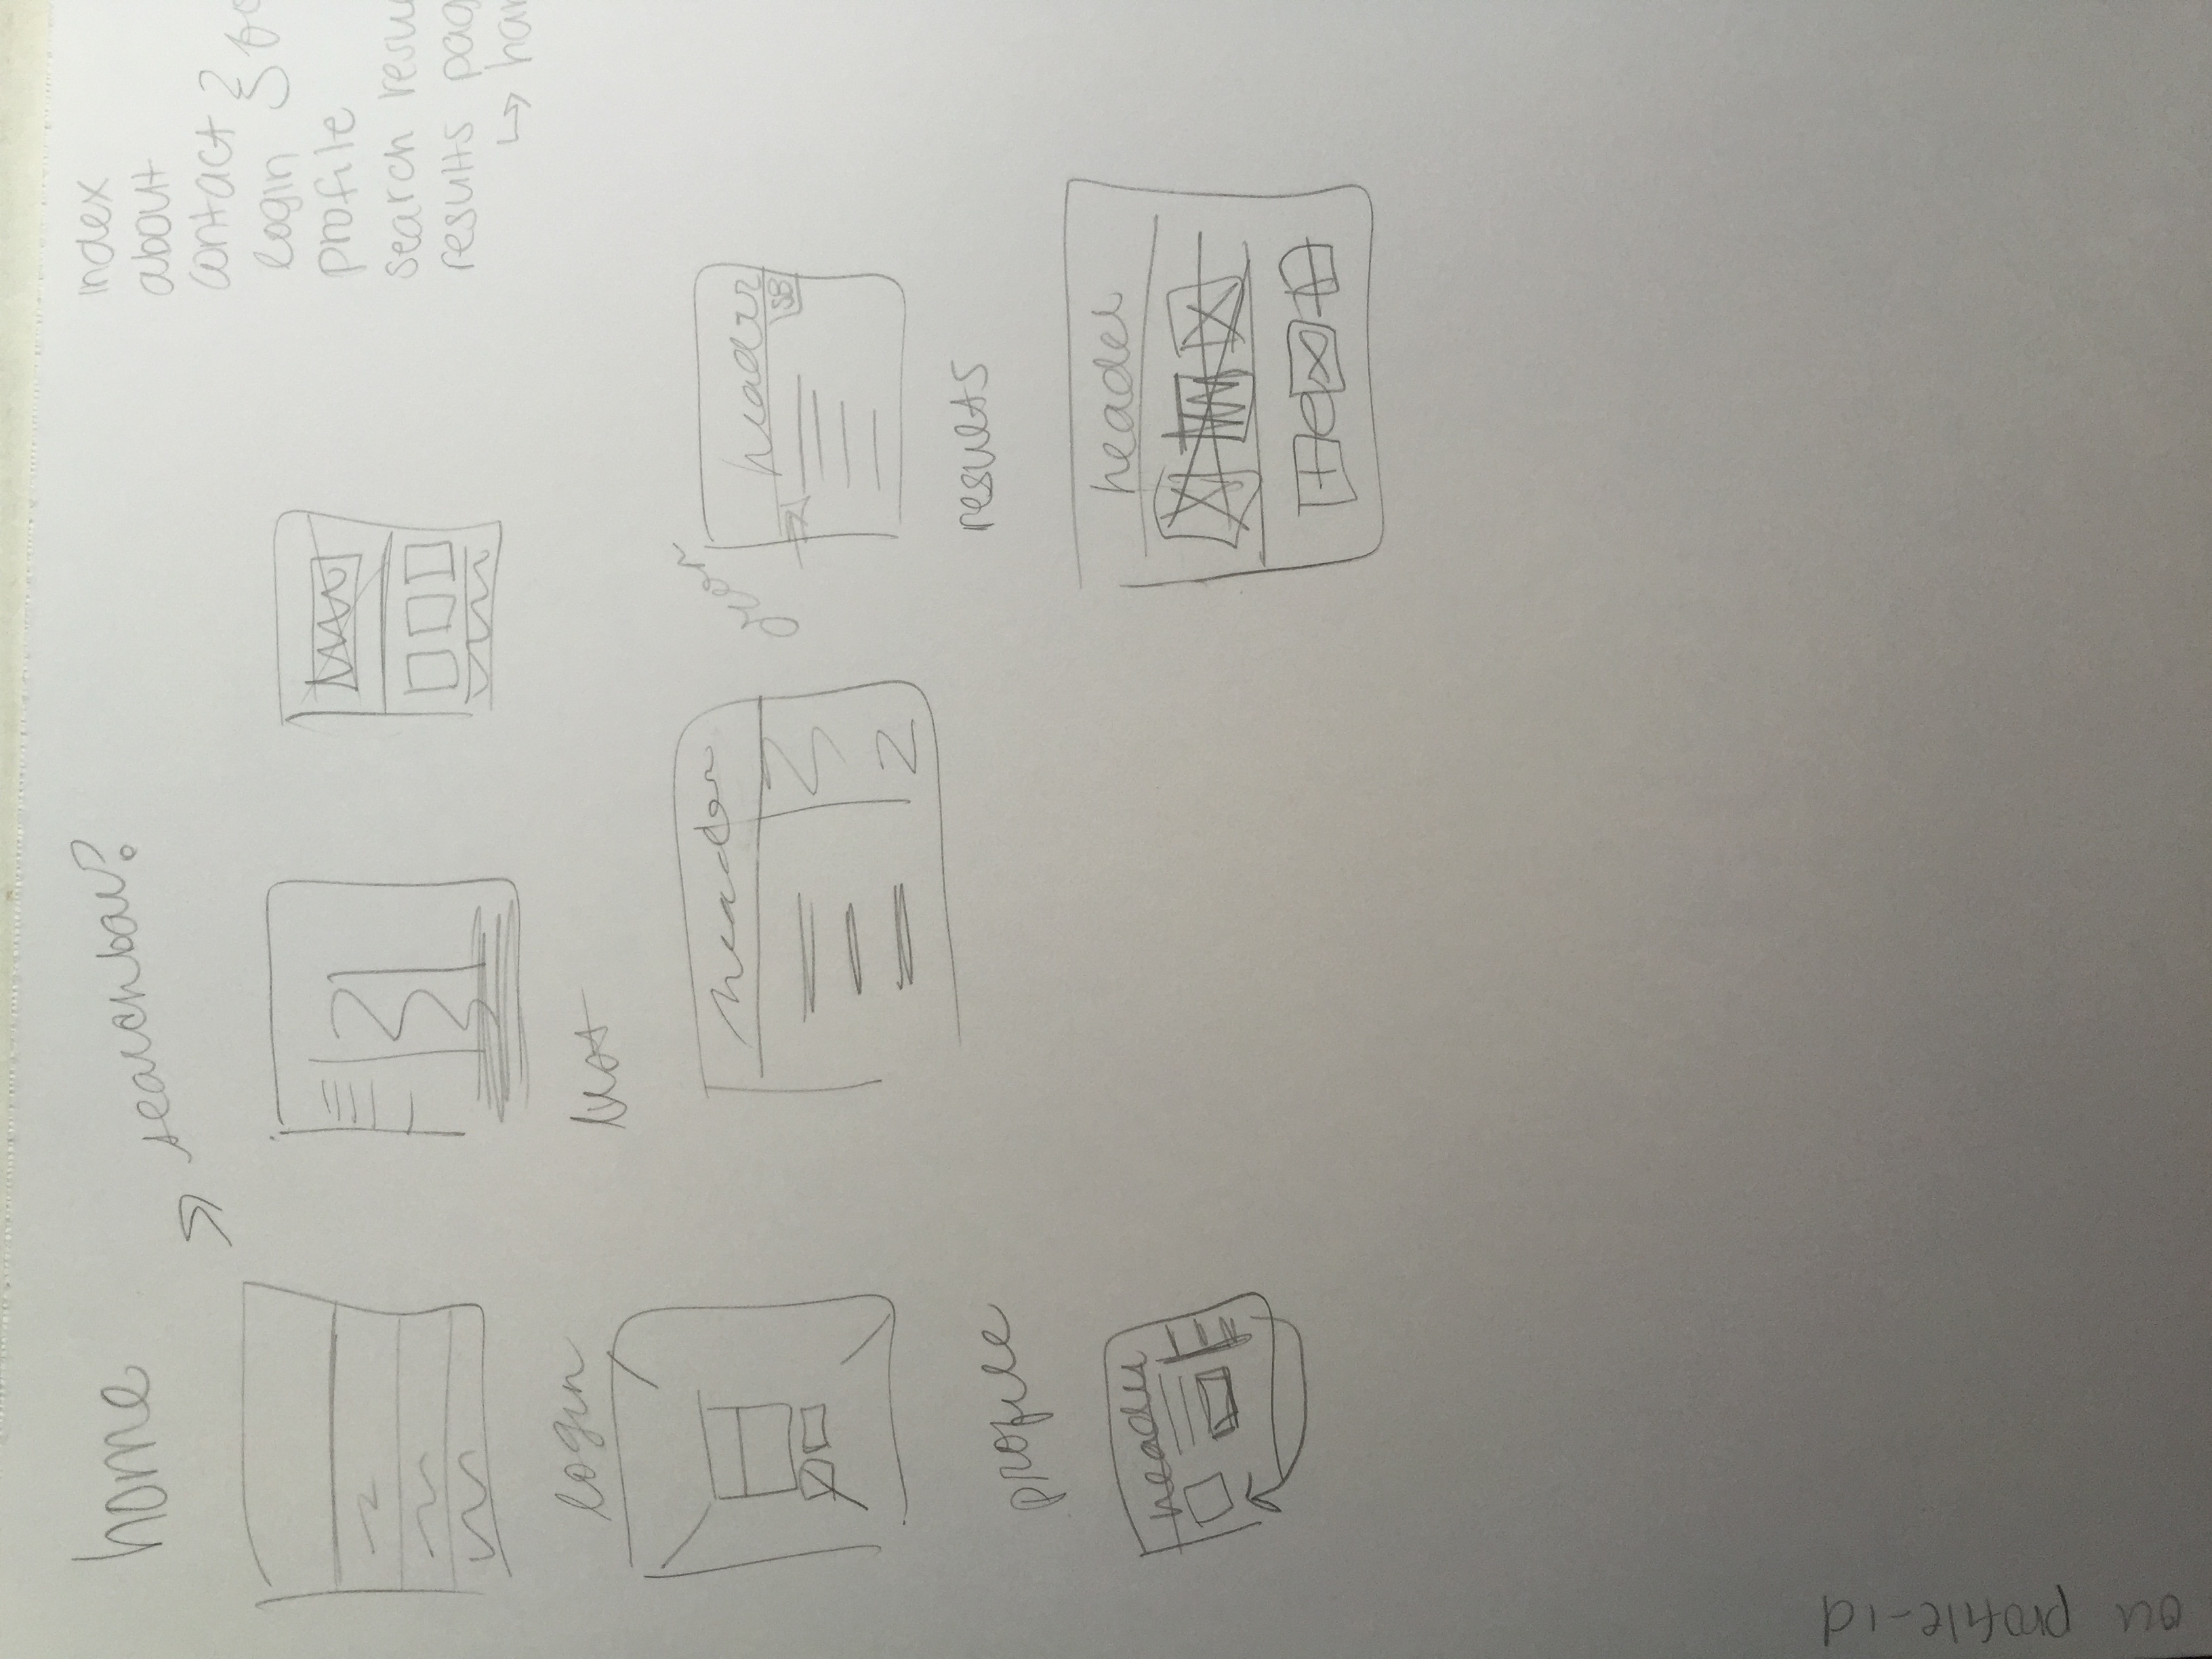 home
searchbar?
index
about
contact
login
profile
search
results
login
header
header
results
profile
header
header
profile-id